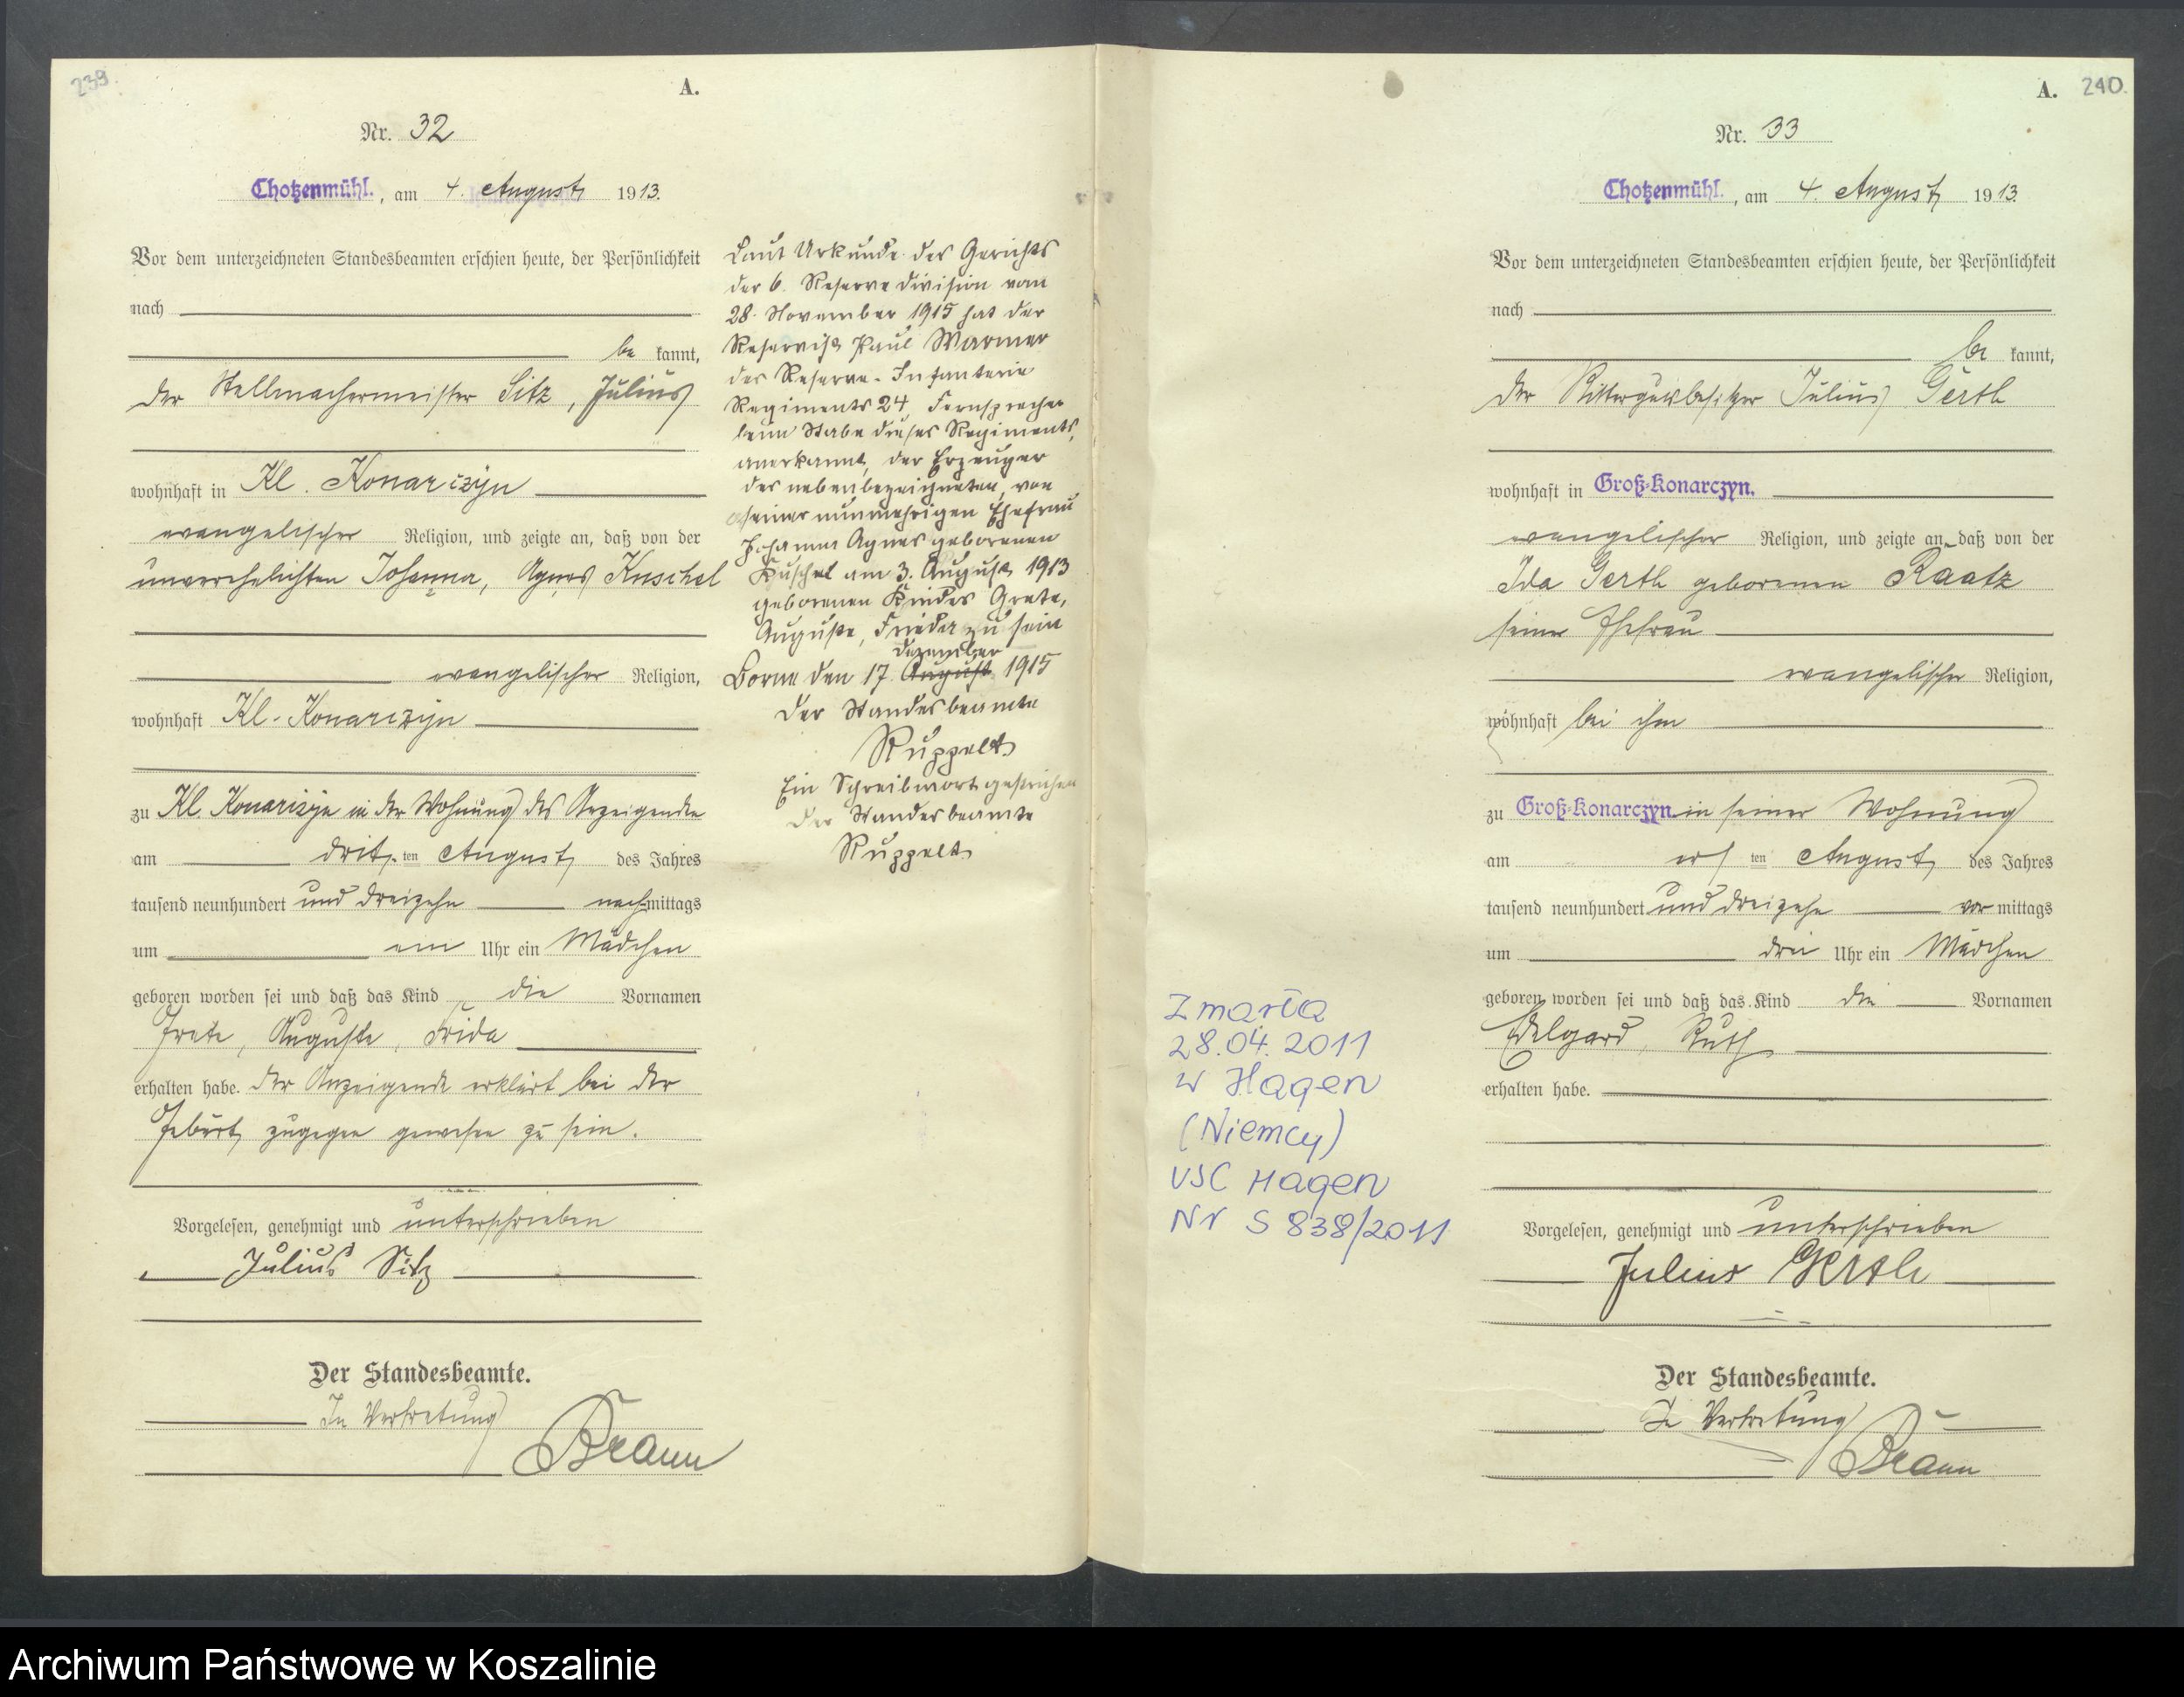 239.
A.
Nr. 32
Chotzenmühl., am 4. August 1913.
Vor dem unterzeichneten Standesbeamten erschien heute, der Persönlichkeit
nach
be kannt,
der Stellmachermeister Sitz, Julius
wohnhaft in Kl. Konarczyn
evangelischer Religion, und zeigte an, daß von der
unverehelichten Johanna, Agnes Kuschel
evangelischer Religion,
wohnhaft Kl. Konarczyn
zu Kl. Konarczyn in der Wohnung des Anzeigenden
am dritten August des Jahres
tausend neunhundert und dreizehn nachmittags
um ein Uhr ein Mädchen
geboren worden sei und daß das Kind die Vornamen
Grete, Auguste, Frida
erhalten habe. Der Anzeigende erklärt bei der
Geburt zugegen gewesen zu sein.
Vorgelesen, genehmigt und unterschrieben
Julius Sitz
Der Standesbeamte.
In Vertretung
Braun
Laut Urkunde des Gerichts
der 6. Reserve division vom
28. November 1915 hat der
Reservist Paul Warmer
des Reserve-Infanterie
Regiments 24, Fernsprecher
beim Stabe dieses Regiments,
anerkannt, der Erzeuger
des nebenbezeichneten, von
seiner nunmehrigen Ehefrau
Johanna Agnes geborenen
Kuschel am 3. August 1913
geborenen Kindes Grete,
Auguste, Frieda zu sein
Dezember
Borne den 17. August 1915
Der Standesbeamte
Ruppelt
Ein Schreibwort gestrichen
Der Standesbeamte
Ruppelt
A. 240.
Nr. 33
Chotzenmühl., am 4. August 1913.
Vor dem unterzeichneten Standesbeamten erschien heute, der Persönlichkeit
nach
be kannt,
der Rittergutsbesitzer Julius Gerth
wohnhaft in Groß-Konarczyn.
evangelischer Religion, und zeigte an, daß von der
Ida Gerth geborenen Raatz
seiner Ehefrau
evangelischer Religion,
wohnhaft bei ihm
zu Groß-Konarczyn in seiner Wohnung
am ersten August des Jahres
tausend neunhundert und dreizehn vormittags
um drei Uhr ein Mädchen
geboren worden sei und daß das Kind die Vornamen
Edelgard, Ruth
erhalten habe.
Vorgelesen, genehmigt und unterschrieben
Julius Gerth
Der Standesbeamte.
In Vertretung
Braun
Zmarła
28.04.2011
w Hagen
(Niemcy)
USC Hagen
Nr S 838/2011
Archiwum Państwowe w Koszalinie